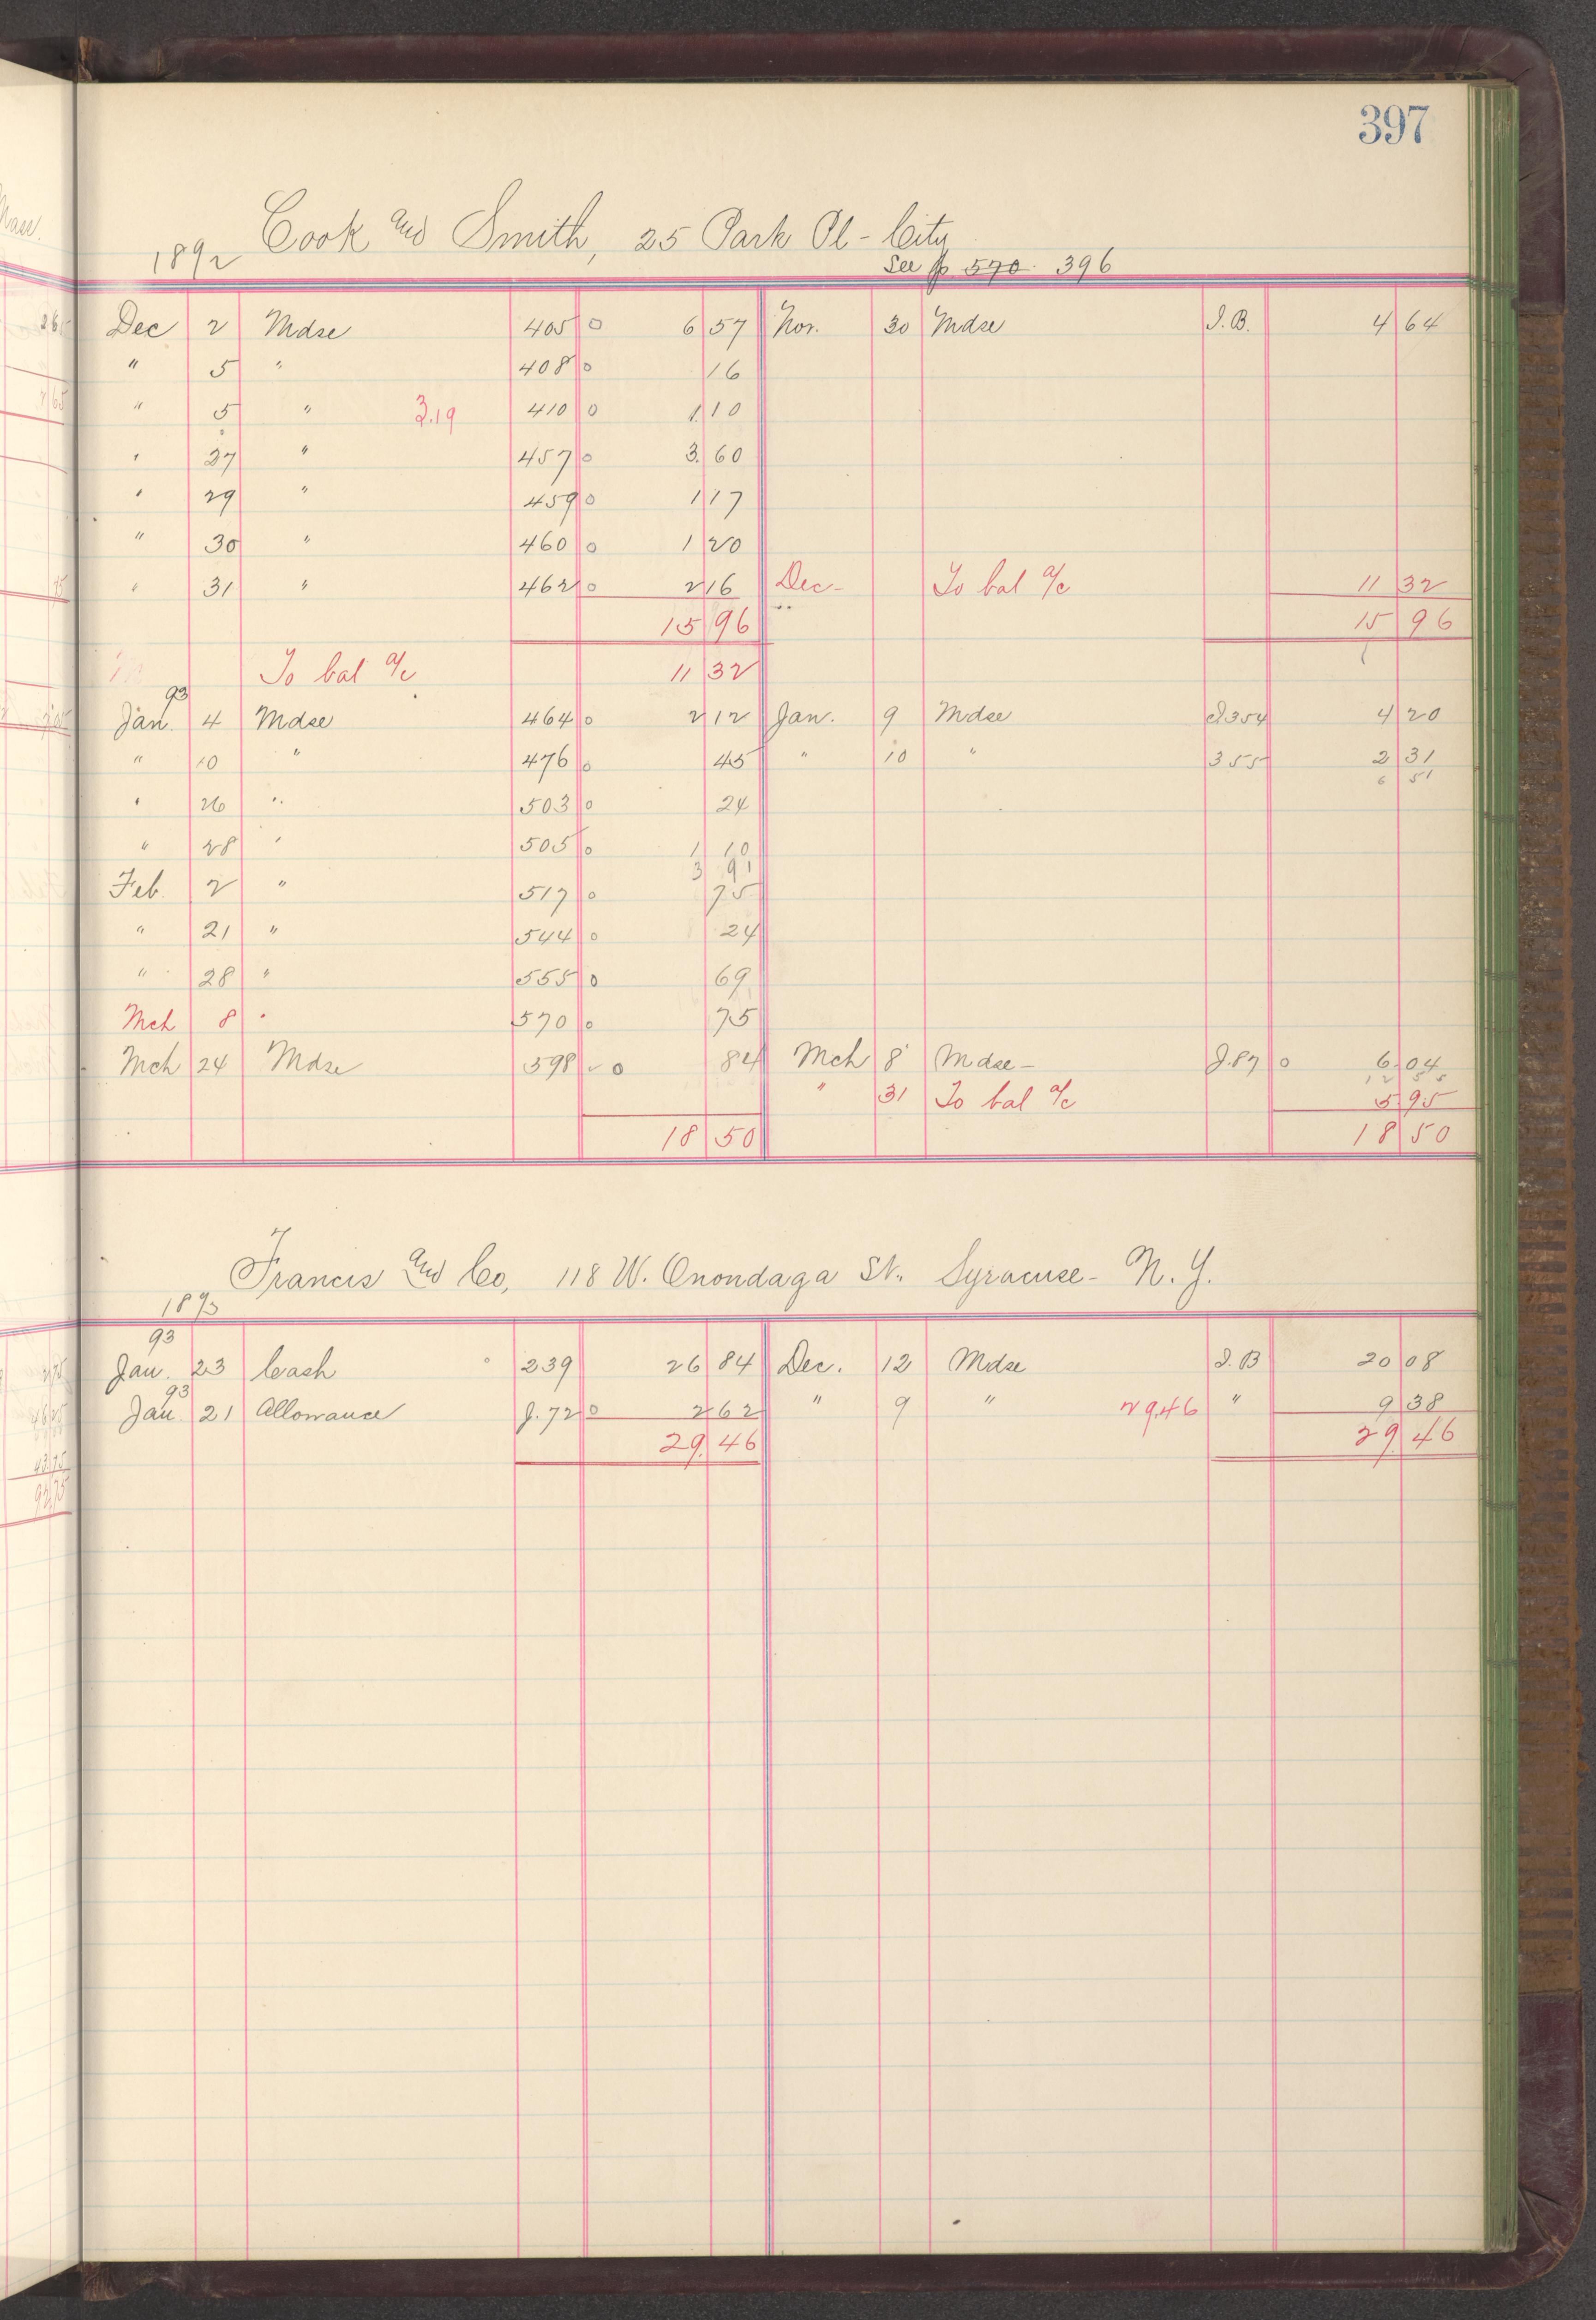 397
Cook and Smith, 25 Park Pl - City
1892
See p 570. 396
Dec 2 Mdse 405 0 6 57 Nov. 30 Mdse I.B. 4 64
" 5 " 408 0 16
" 5 " 3.19 410 0 1 10
" 27 " 457 0 3 60
" 29 " 459 0 1 17
" 30 " 460 0 1 20
" 31 " 462 0 2 16 Dec - To bal a/c 11 32
15 96 15 96
To bal a/c 11 32
93
Jan. 4 Mdse 464 0 2 12 Jan. 9 Mdse I 354 4 20
" 10 " 476 0 45 " 10 " 355 2 31
6 51
" 26 " 503 0 24
" 28 " 505 0 1 10
3 91
Feb. 2 " 517 0 75
" 21 " 544 0 24
" 28 " 555 0 69
Mch 8 " 570 0 75
Mch 24 Mdse 598 0 84 Mch 8 Mdse - J.87 0 6 04
12 55
" 31 To bal a/c 5 95
18 50 18 50
Francis and Co, 118 W. Onondaga St., Syracuse - N.Y.
1893
93
Jan. 23 Cash 239 26 84 Dec. 12 Mdse I.B 20 08
93
Jan. 21 Allowance J.72 0 2 62 " 9 " 29.46 " 9 38
29 46 29 46